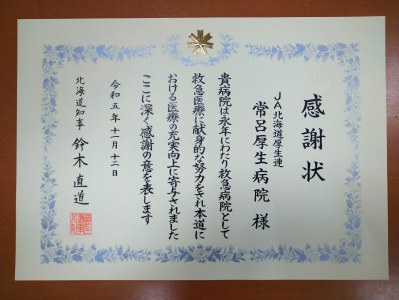 感謝状
JA北海道厚生連
常呂厚生病院 様
貴病院は永年にわたり救急病院として
救急医療に献身的な努力をされ本道に
おける医療の充実向上に寄与されました
ここに深く感謝の意を表します
令和五年十一月十二日
北海道知事 鈴木直道